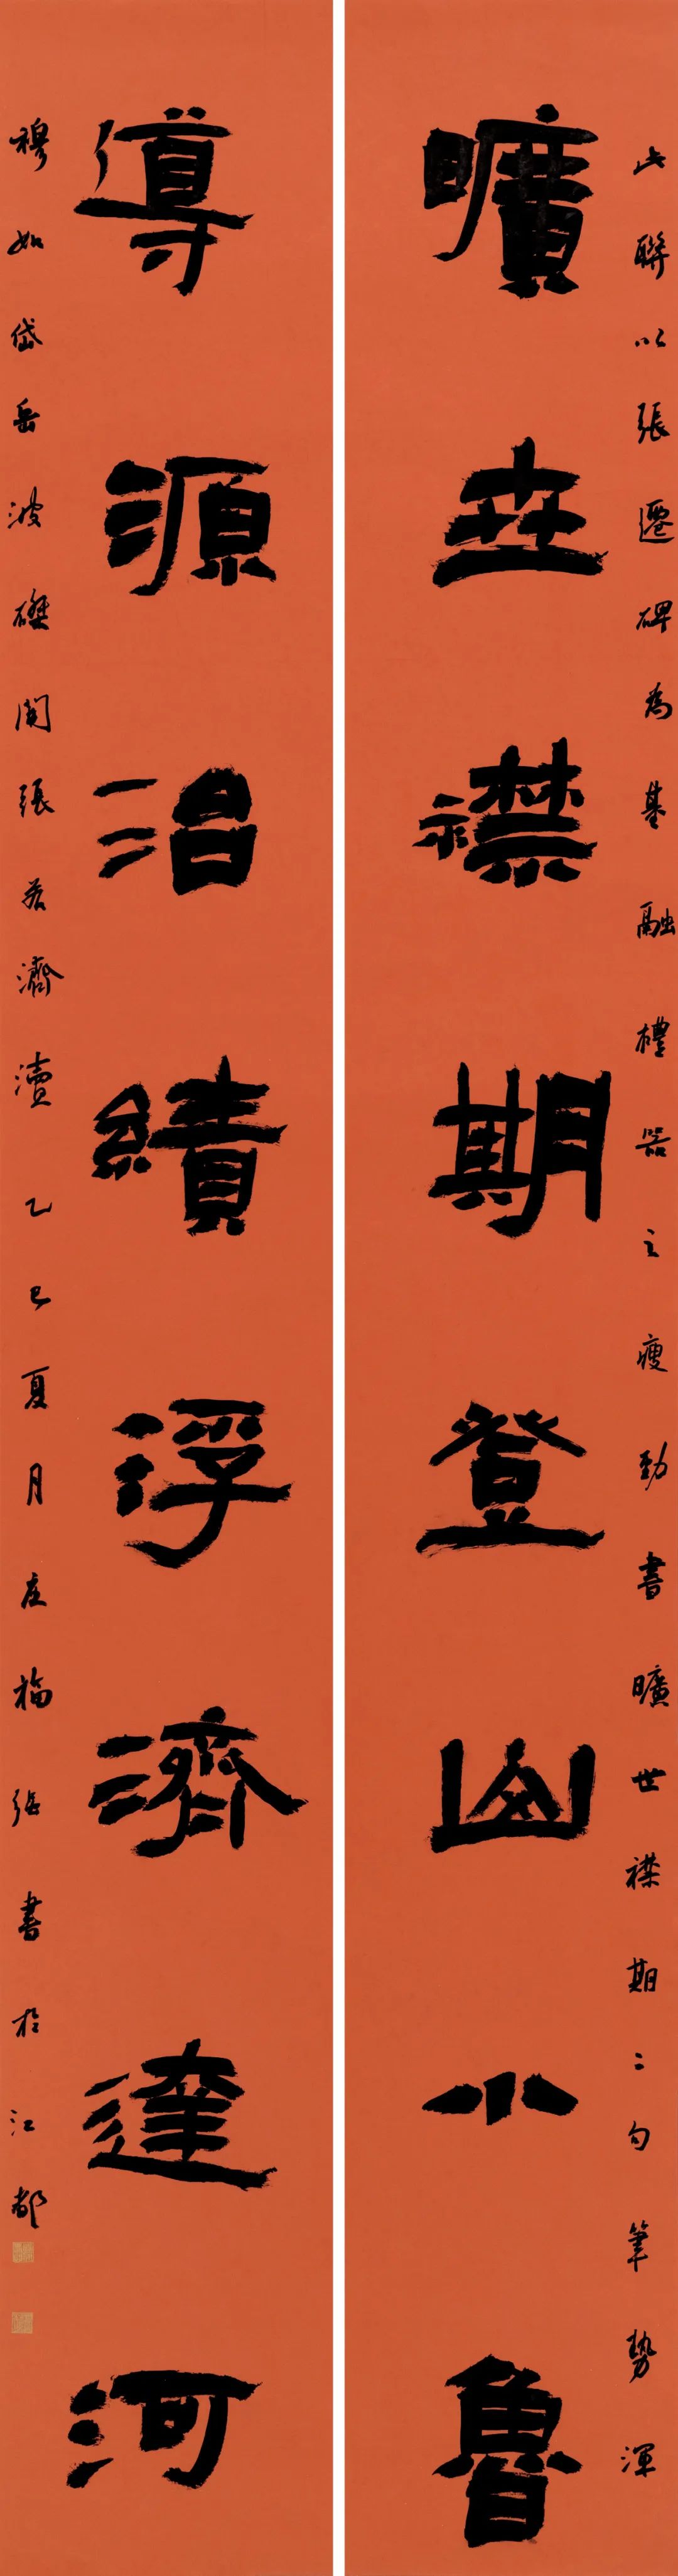 此聯以張遷碑為基融禮器之瘦勁書曠世襟期二句筆勢渾
曠世襟期登山小魯
導源治績浮濟達河
穆如岱岳波磔開張若濟瀆乙巳夏月福書於江都